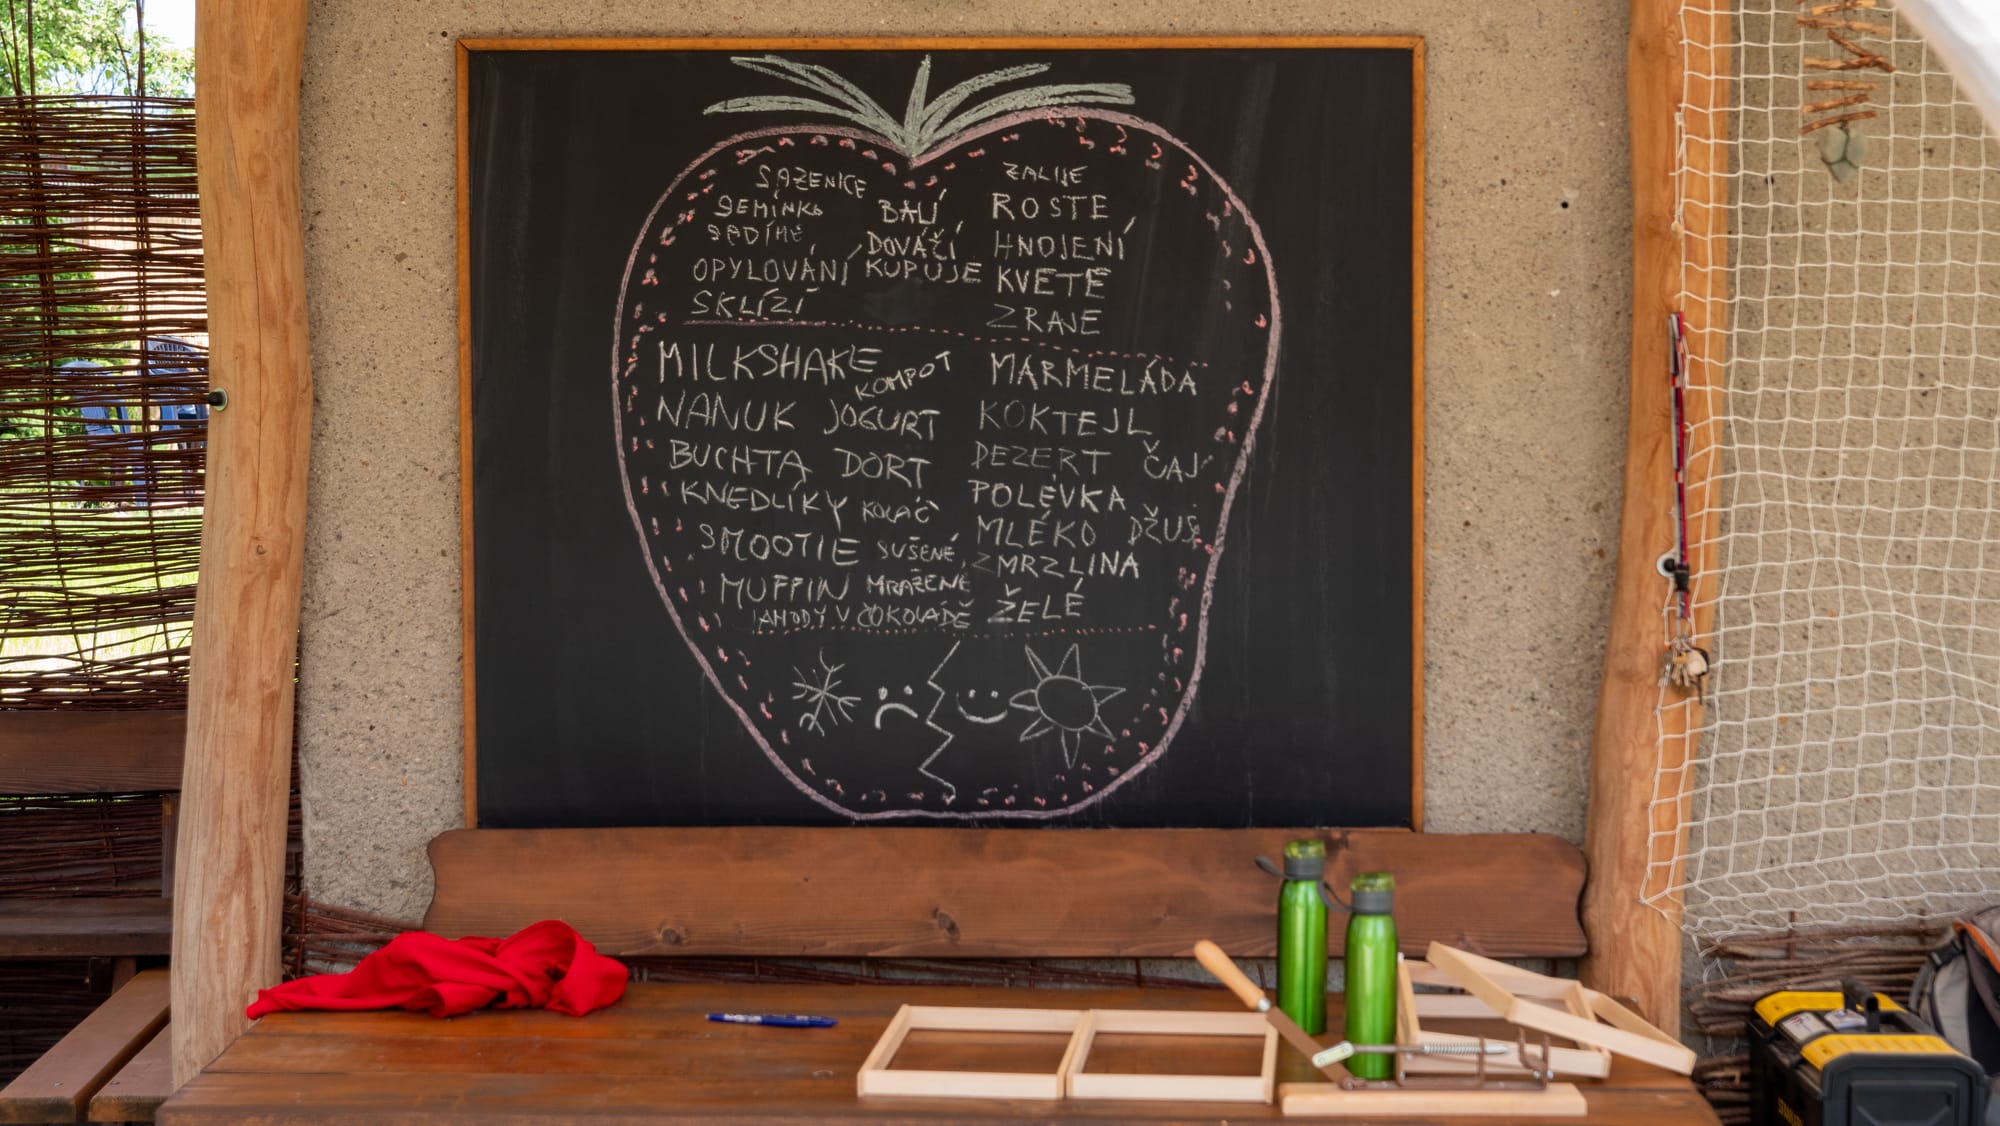 SAZENICE
SEMÍNKO
SADÍME
OPYLOVÁNÍ
SKLÍZÍ
BALÍ
DOVÁŽÍ
KUPUJE
ZALIJE
ROSTE
HNOJENÍ
KVETE
ZRAJE
MILKSHAKE
KOMPOT
NANUK JOGURT
BUCHTA DORT
KNEDLÍKY KOLÁČ
SMOOTIE SUŠENÉ,
MUFFIN MRAŽENÉ
JAHODY V ČOKOLÁDĚ
MARMELÁDA
KOKTEJL
DEZERT ČAJ
POLÉVKA
MLÉKO DŽUS
ZMRZLINA
ŽELÉ